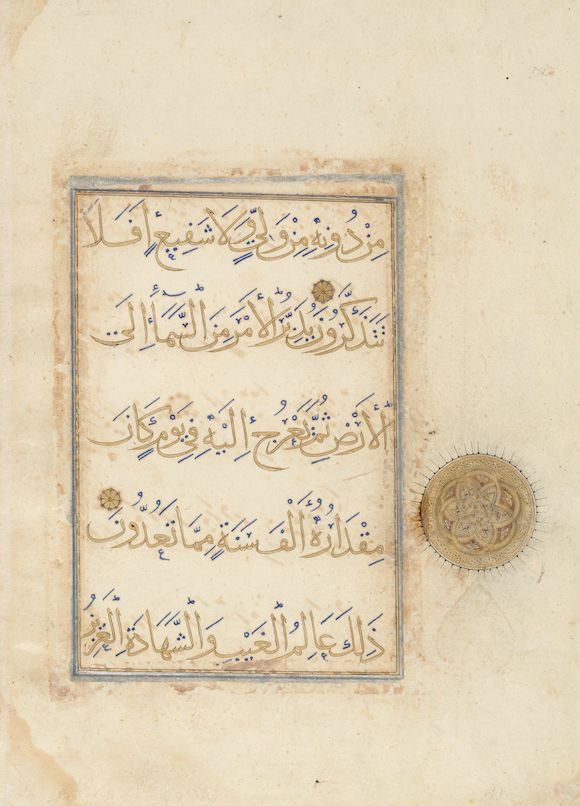 مِنْ دُونِهِ مِنْ وَلِيٍّ وَلَا شَفِيعٍ أَفَلَا
تَتَذَكَّرُونَ يُدَبِّرُ الْأَمْرَ مِنَ السَّمَاءِ إِلَى
الْأَرْضِ ثُمَّ يَعْرُجُ إِلَيْهِ فِي يَوْمٍ كَانَ
مِقْدَارُهُ أَلْفَ سَنَةٍ مِمَّا تَعُدُّونَ
ذَلِكَ عَالِمُ الْغَيْبِ وَالشَّهَادَةِ الْعَزِيزُ